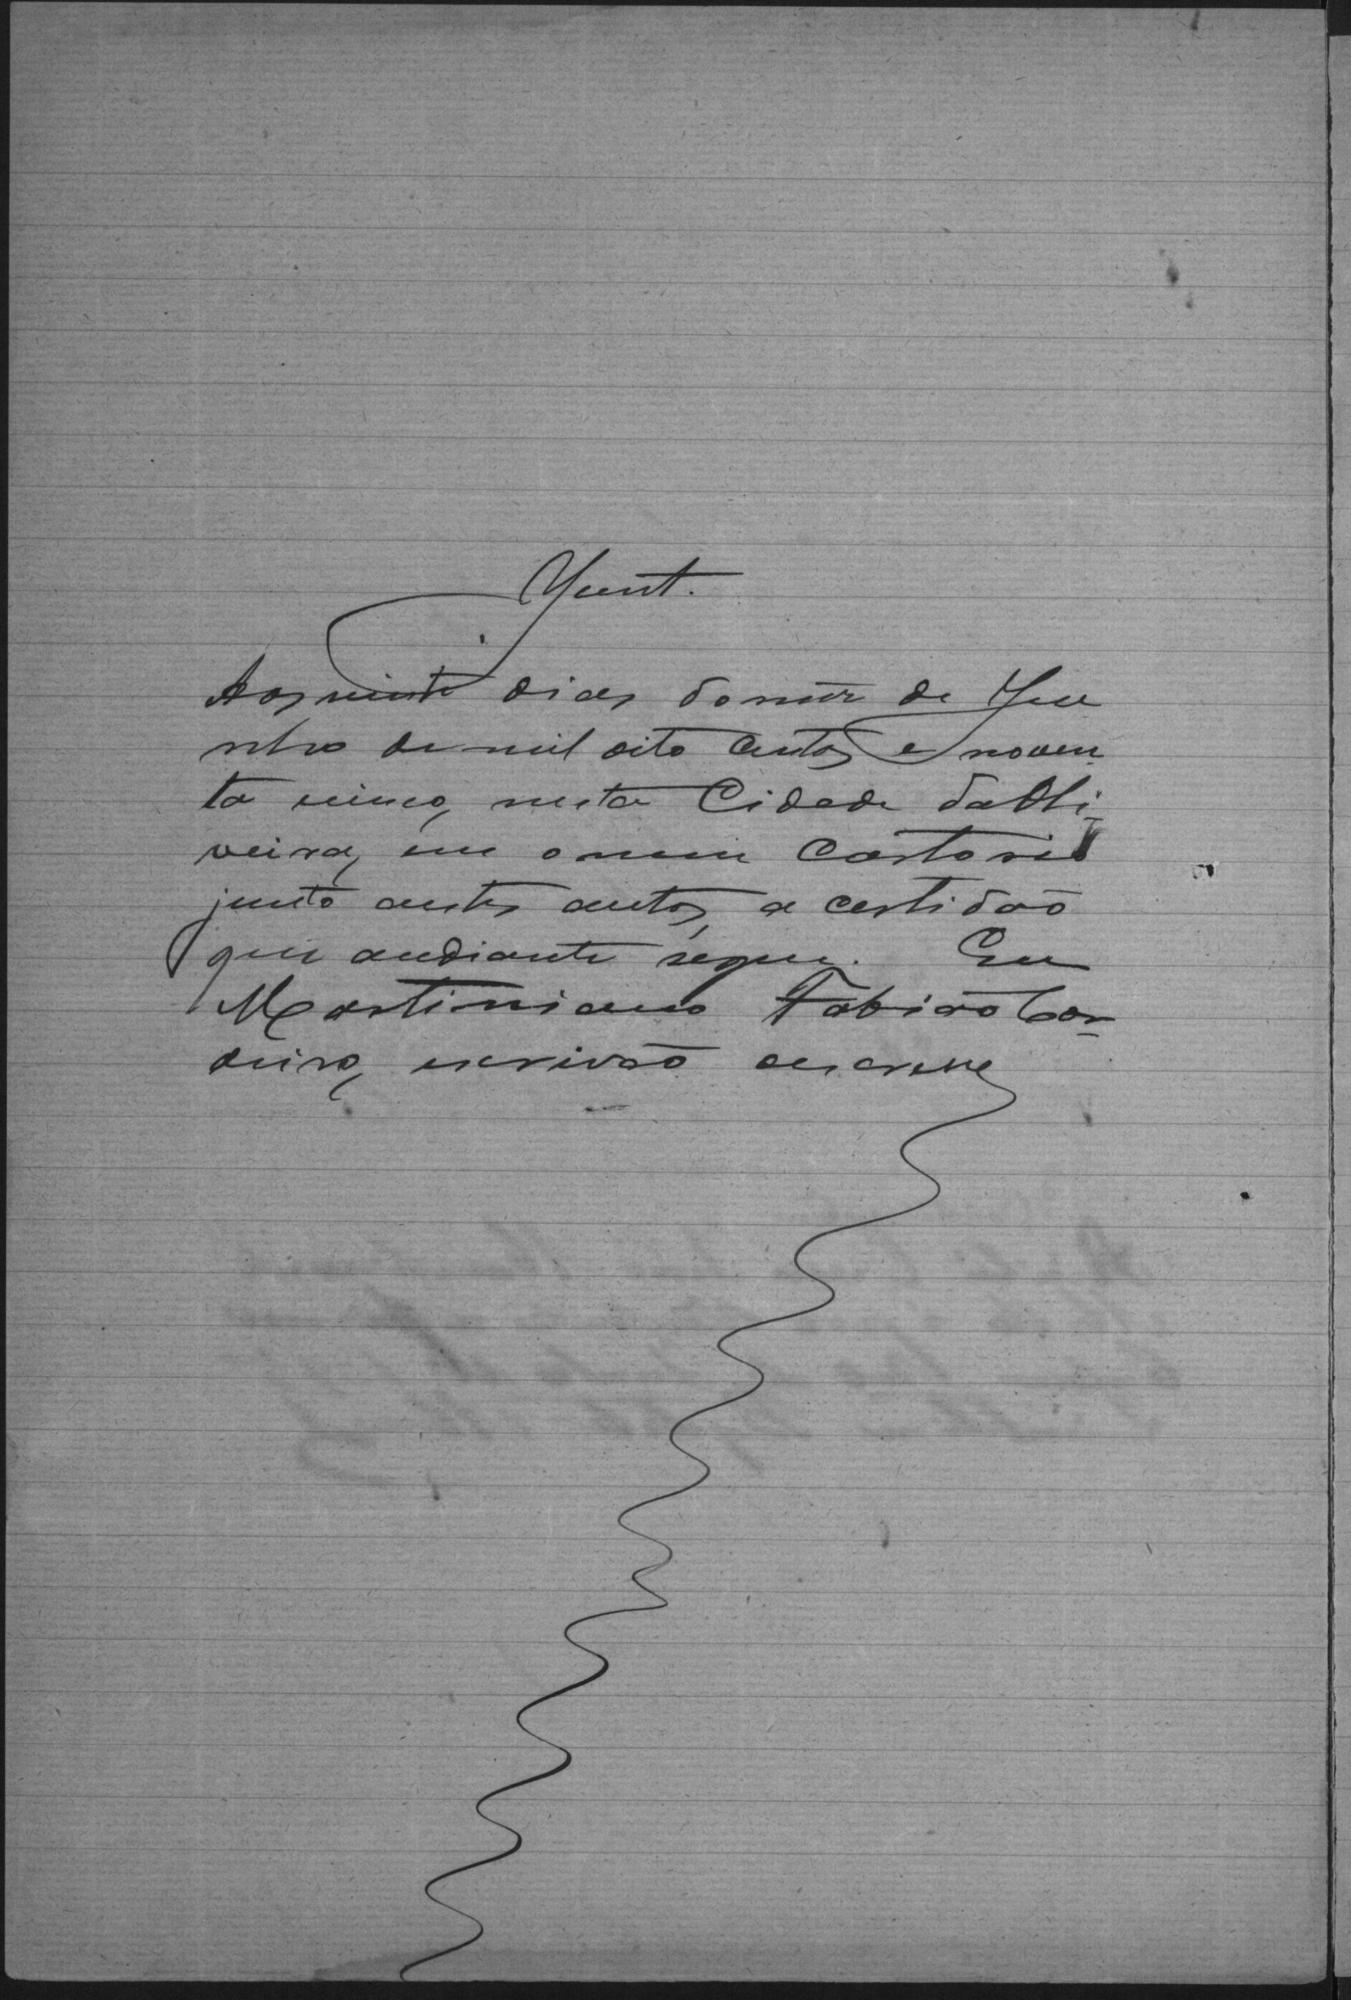 Junt.
Aos vinte dias do mez de Ju
nho de mil oito centos e noven
ta cinco, nesta Cidade da Oli
veira, em o meu Cartorio
junto a estes autos, a certidão
que a diante segue. Eu
Martiniano Fabião Cor
deiro, escrivão